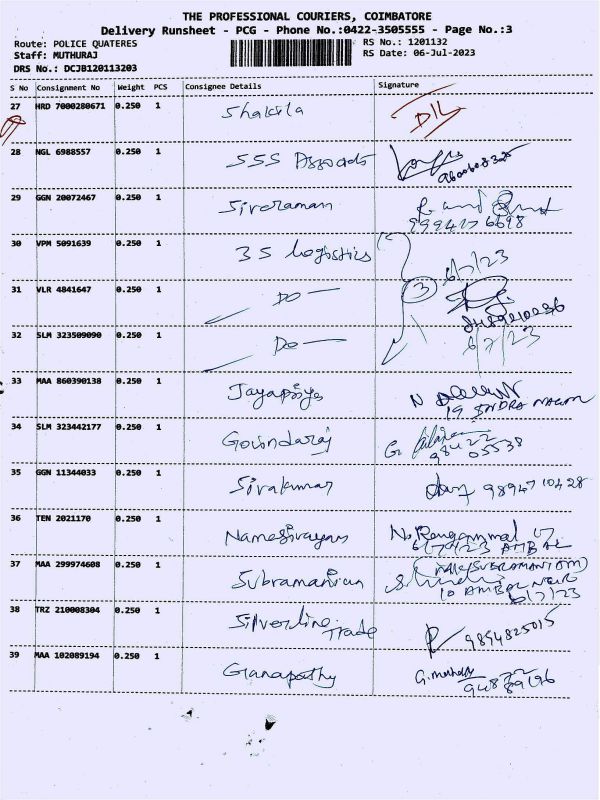 THE PROFESSIONAL COURIERS, COIMBATORE
Delivery Runsheet - PCG - Phone No.:0422-3505555 - Page No.:3
Route: POLICE QUATERES RS No.: 1201132
Staff: MUTHURAJ RS Date: 06-Jul-2023
DRS No.: DCJB120113203
S No Consignment No Weight PCS Consignee Details Signature
27 HRD 7000280671 0.250 1 Shakila
28 NGL 6988557 0.250 1 SSS
29 GGN 20072467 0.250 1 Sivaraman
30 VPM 5091639 0.250 1 3S logistics 6/7/23
31 VLR 4841647 0.250 1 Do 3
32 SLM 323509090 0.250 1 Do 6/7/23
33 MAA 860390138 0.250 1 Jayapriya N
19 INDRA NAGAR
34 SLM 323442177 0.250 1 Govindaraj G.
98422
05538
35 GGN 11344033 0.250 1 Sivakumar 9894710428
36 TEN 2021170 0.250 1 Namasivayam
6/7/23 AMBAL
37 MAA 299974608 0.250 1 Subramanian
10 AMBAL
6/7/23
38 TRZ 210008304 0.250 1 Silverline 9894825015
Trade
39 MAA 102089194 0.250 1 Ganapathy